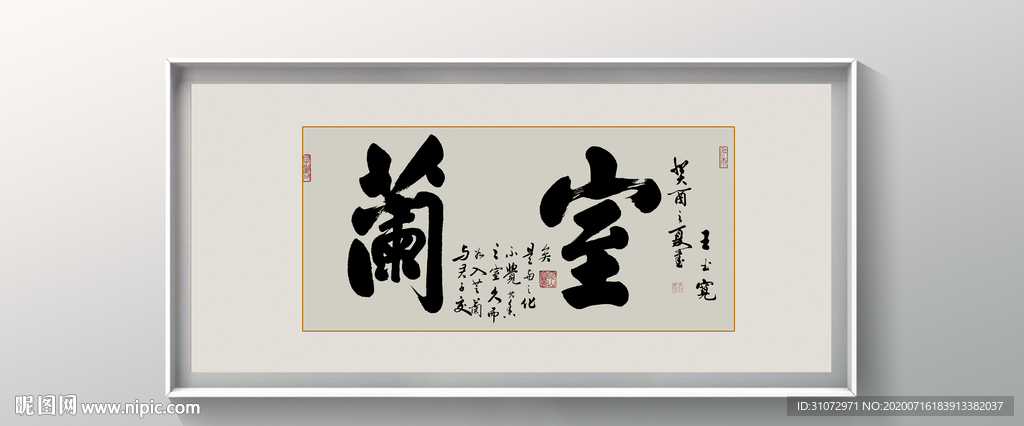 蘭室
与君子交
如入芝蘭
之室久而
不覺其香
是与之化
矣
癸酉之夏書
王玉寬
昵图网 www.nipic.com
ID:31072971 NO:20200716183913382037